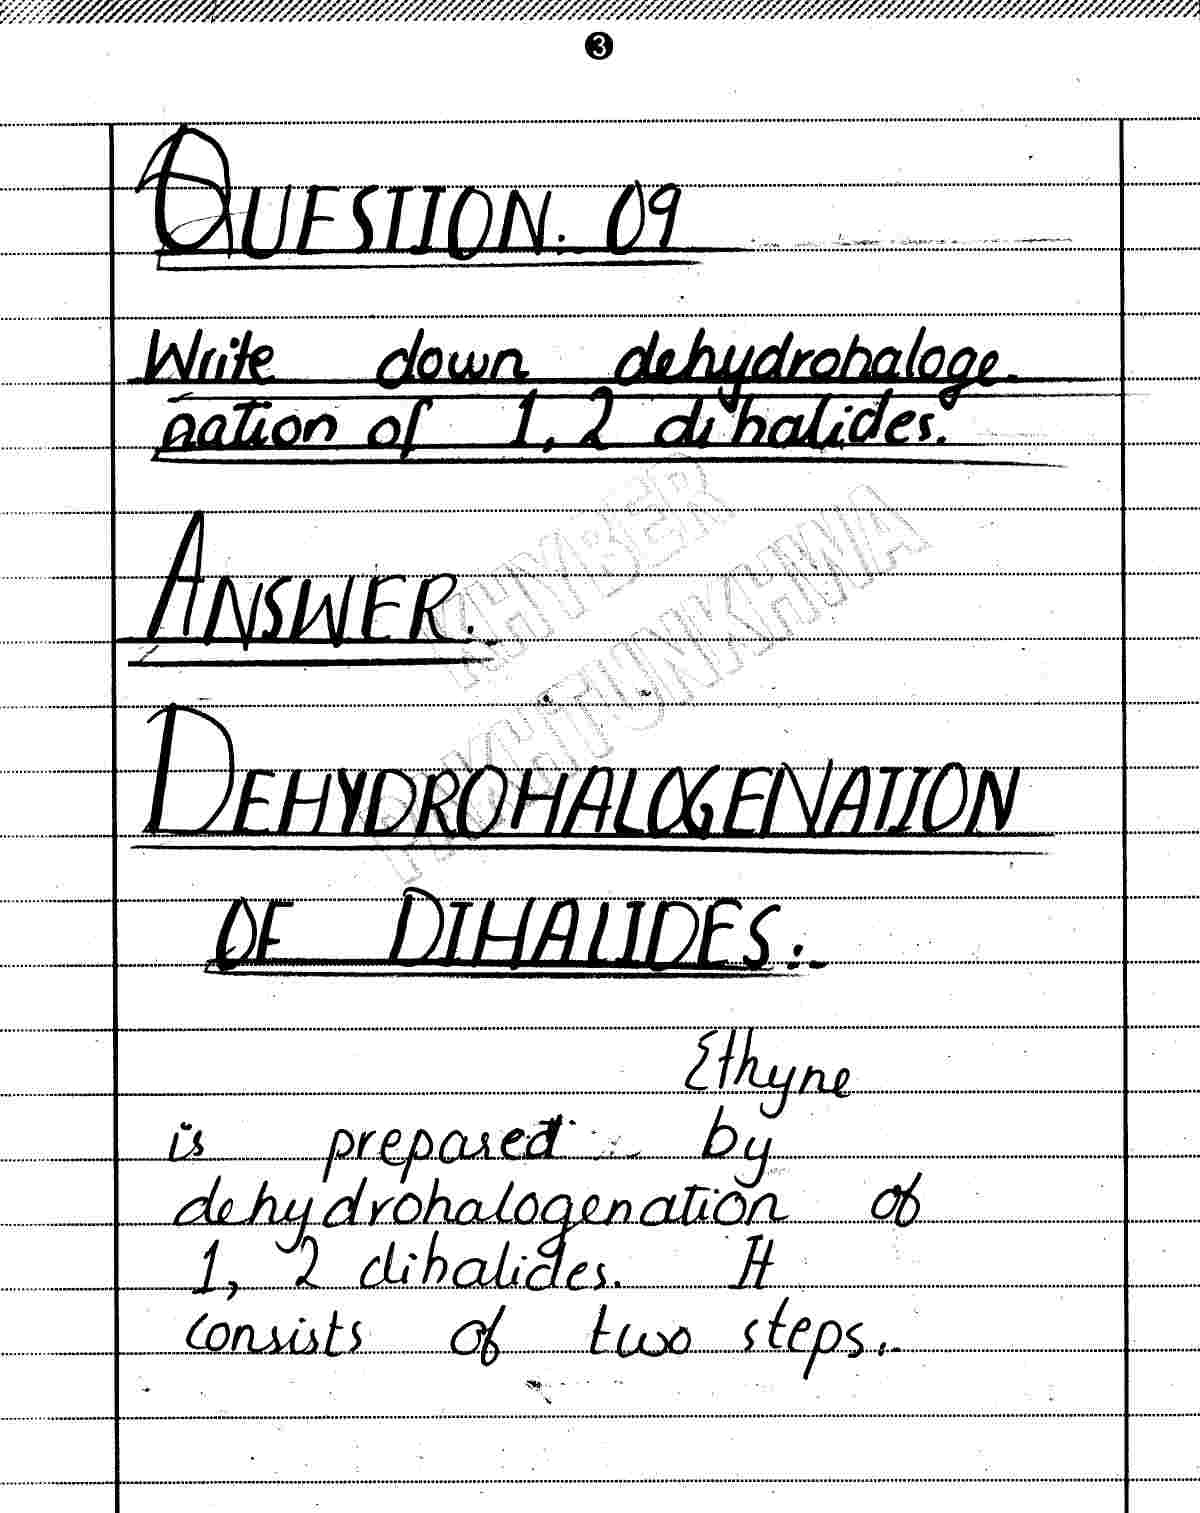 3
QUESTION. 09
Write down dehydrohaloge-
nation of 1, 2 dihalides.
ANSWER.
KHYBER
PAKHTUNKHWA
DEHYDROHALOGENATION
OF DIHALIDES:-
Ethyne
is prepared by
dehydrohalogenation of
1, 2 dihalides. It
consists of two steps:-